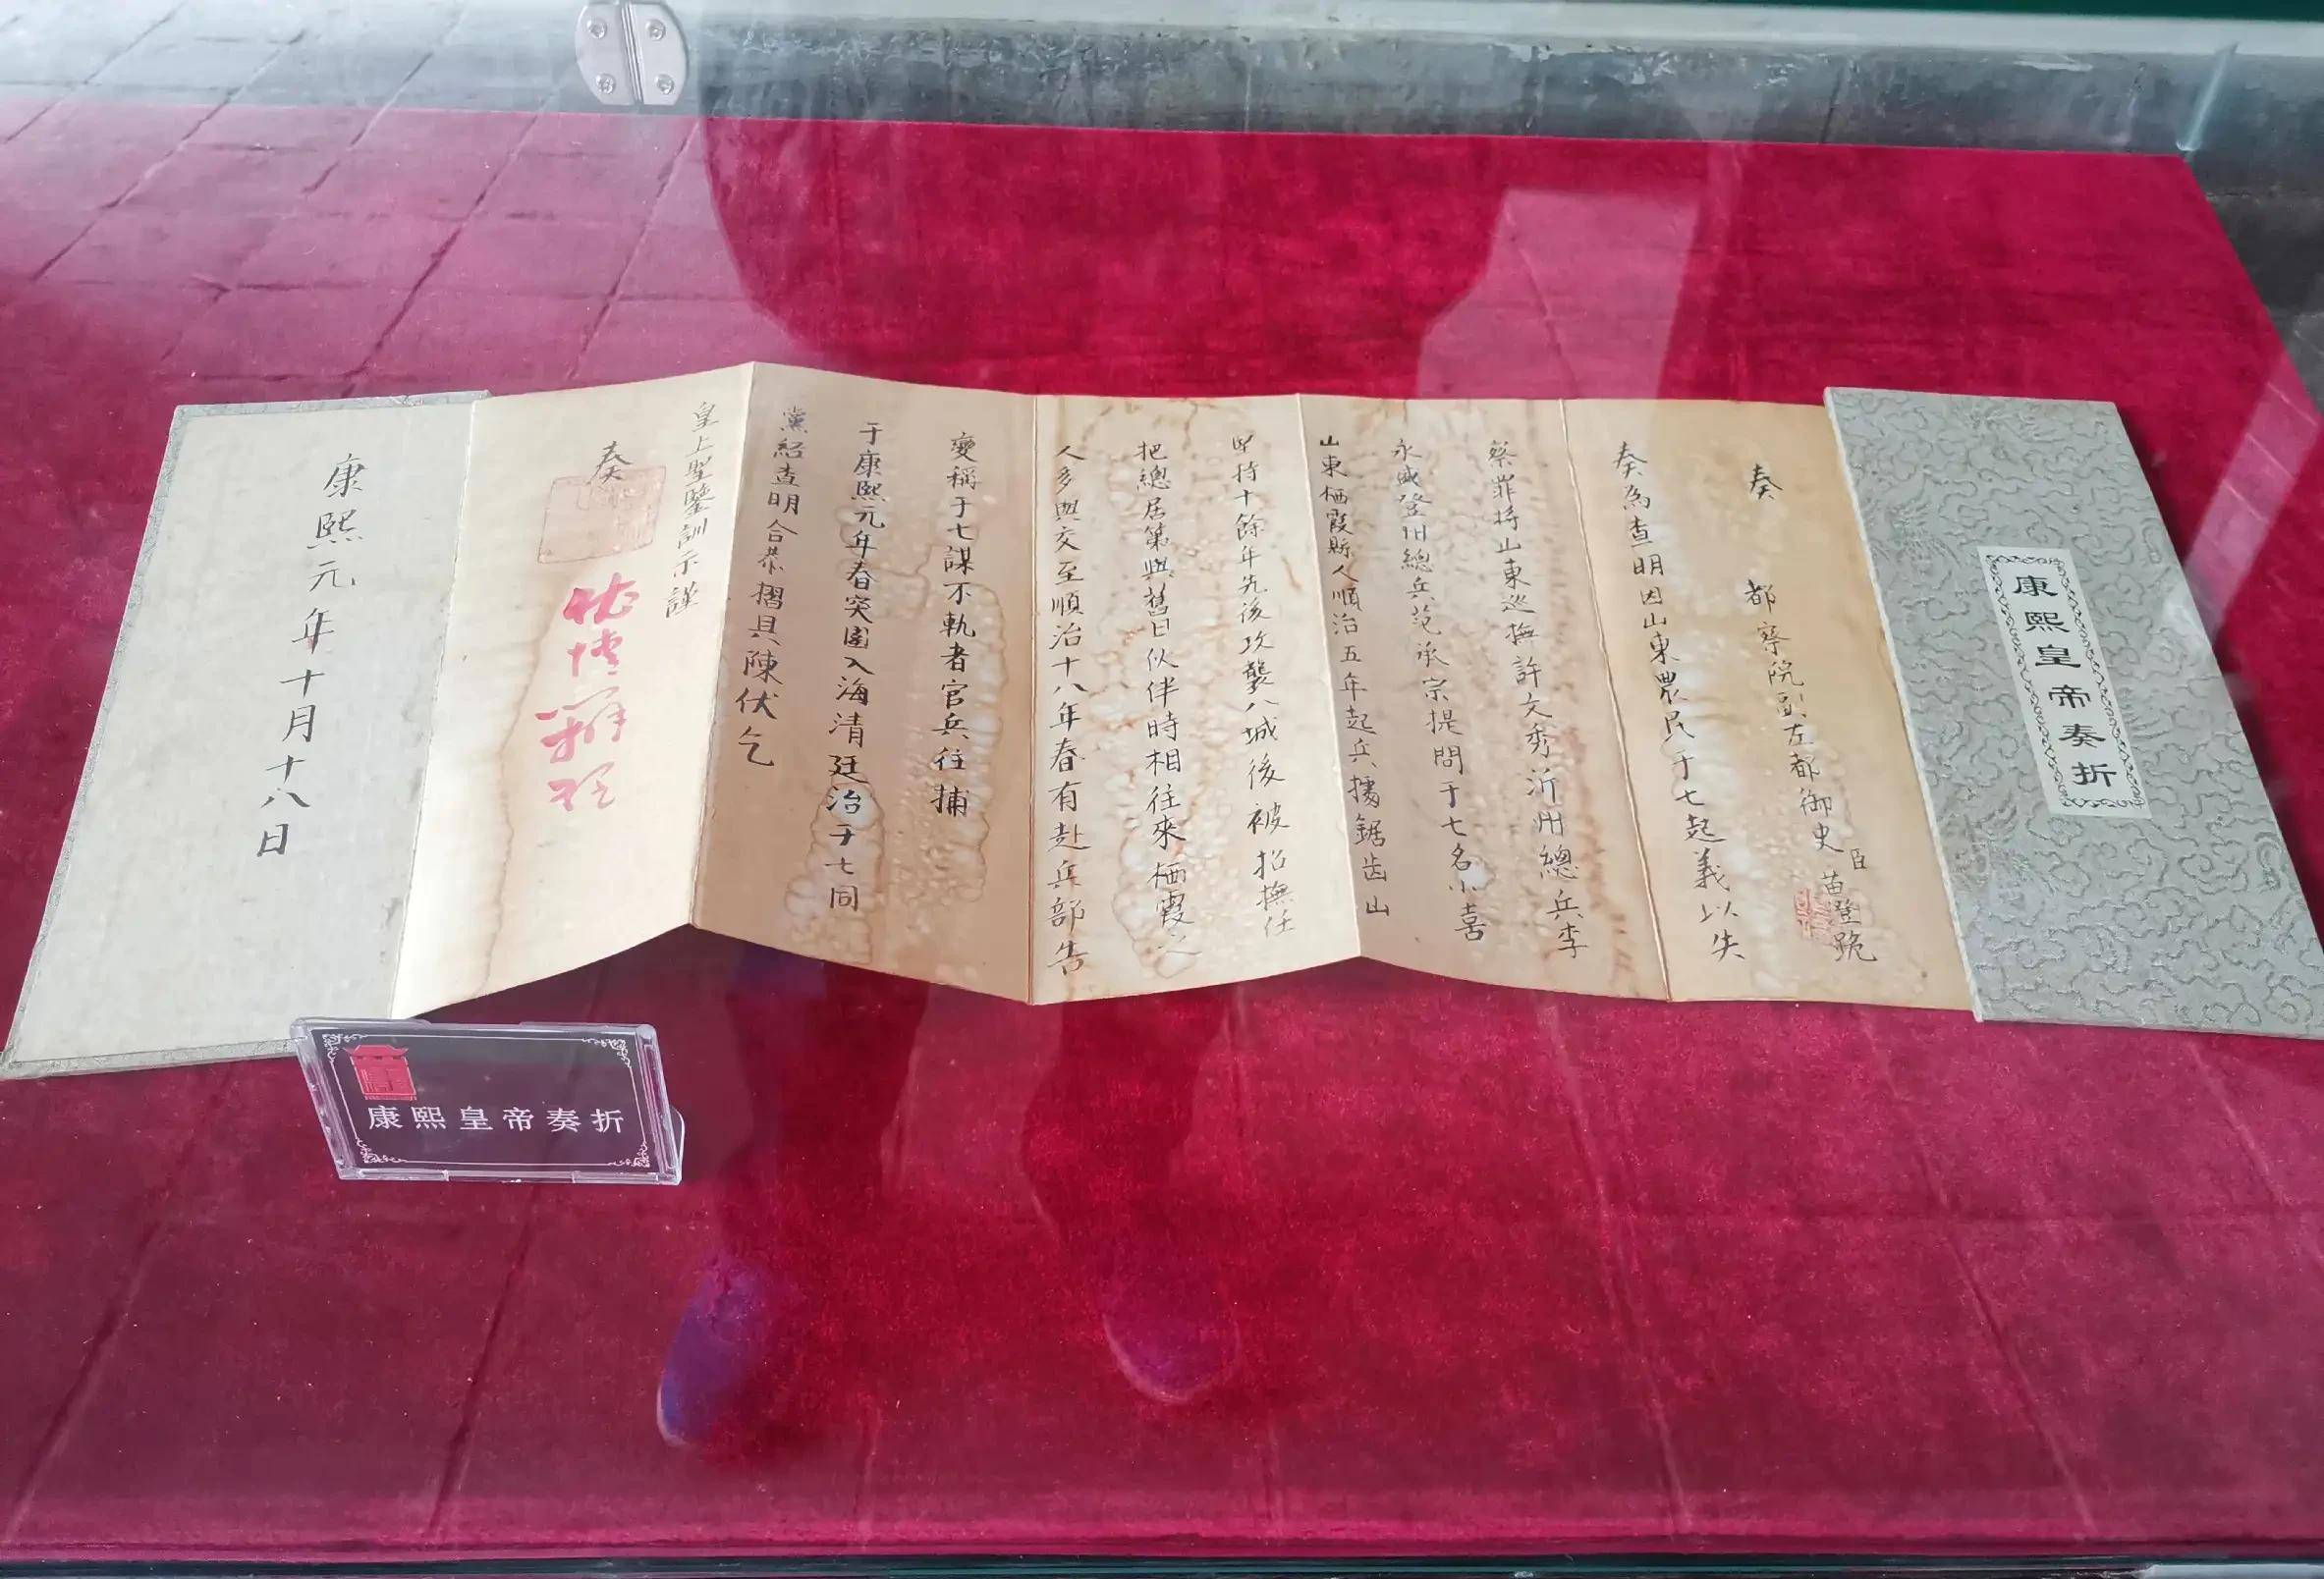 康熙皇帝奏折
奏 都察院副左都御史臣苗澄跪
奏為查明因山東農民于七起義以失
察罪將山東巡撫許文秀沂州總兵李
永盛登州總兵范承宗提問于七名小喜
山東栖霞縣人順治五年起兵據鋸齿山
堅持十餘年先後攻襲八城後被招撫任
把總居第與舊日伙伴時相往來栖霞之
人多與交至順治十八年春有赴兵部告
變稱于七謀不軌者官兵往捕
于康熙元年春突圍入海清廷治于七同
黨紹查明合恭摺具陳伏乞
皇上聖鑒訓示謹
奏
康熙元年十月十八日
康熙皇帝奏折